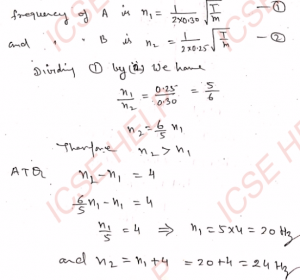 frequency of A is n₁ = 1/(2×0.30) √(T/m) — ①
and " " B is n₂ = 1/(2×0.25) √(T/m) — ②
Dividing ① by ② We have
n₁/n₂ = 0.25/0.30 = 5/6
n₂ = 6/5 n₁
Therfore n₂ > n₁
ATQ n₂ - n₁ = 4
6/5 n₁ - n₁ = 4
n₁/5 = 4 ⇒ n₁ = 5×4 = 20 Hz
and n₂ = n₁ + 4 = 20 + 4 = 24 Hz
ICSE HELP
ICSE HELP